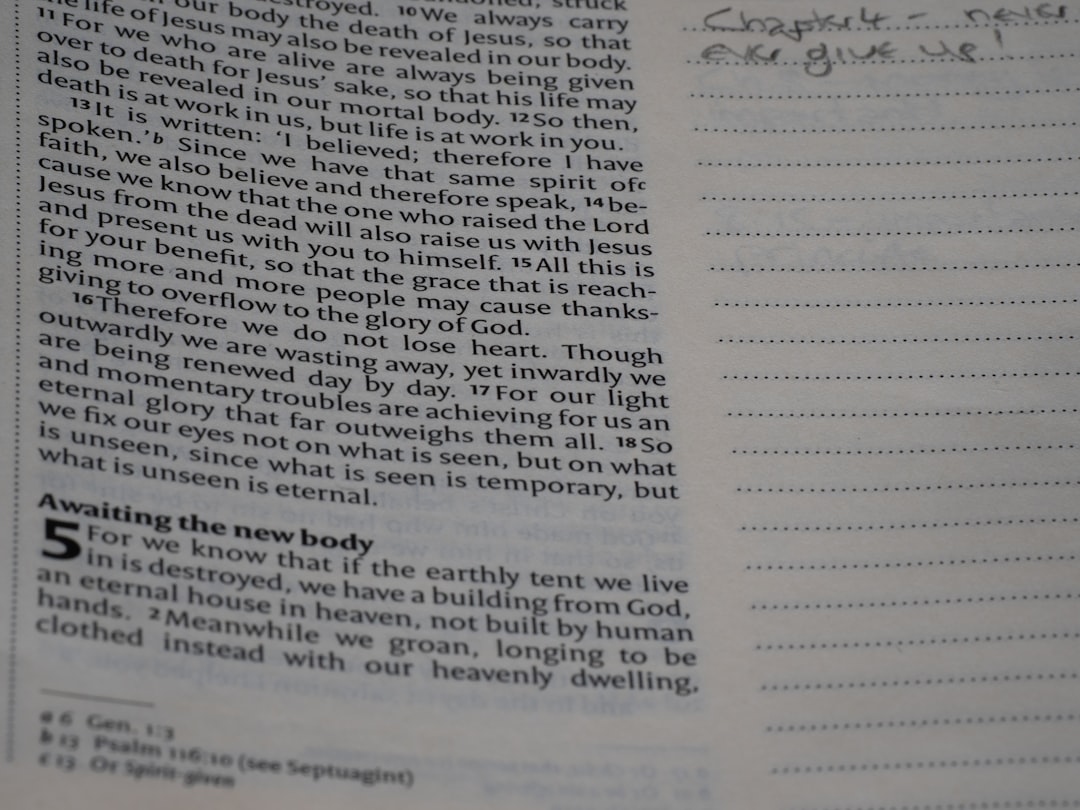 destroyed. ¹⁰We always carry
our body the death of Jesus, so that
the life of Jesus may also be revealed in our body.
¹¹For we who are alive are always being given
over to death for Jesus’ sake, so that his life may
also be revealed in our mortal body. ¹²So then,
death is at work in us, but life is at work in you.
¹³It is written: ‘I believed; therefore I have
spoken.’b Since we have that same spirit ofc
faith, we also believe and therefore speak, ¹⁴be-
cause we know that the one who raised the Lord
Jesus from the dead will also raise us with Jesus
and present us with you to himself. ¹⁵All this is
for your benefit, so that the grace that is reach-
ing more and more people may cause thanks-
giving to overflow to the glory of God.
¹⁶Therefore we do not lose heart. Though
outwardly we are wasting away, yet inwardly we
are being renewed day by day. ¹⁷For our light
and momentary troubles are achieving for us an
eternal glory that far outweighs them all. ¹⁸So
we fix our eyes not on what is seen, but on what
is unseen, since what is seen is temporary, but
what is unseen is eternal.
Awaiting the new body
5 For we know that if the earthly tent we live
in is destroyed, we have a building from God,
an eternal house in heaven, not built by human
hands. ²Meanwhile we groan, longing to be
clothed instead with our heavenly dwelling,
a 6 Gen. 1:3
b 13 Psalm 116:10 (see Septuagint)
c 13 Or Spirit-given
Chapter 4 - never
ever give up!